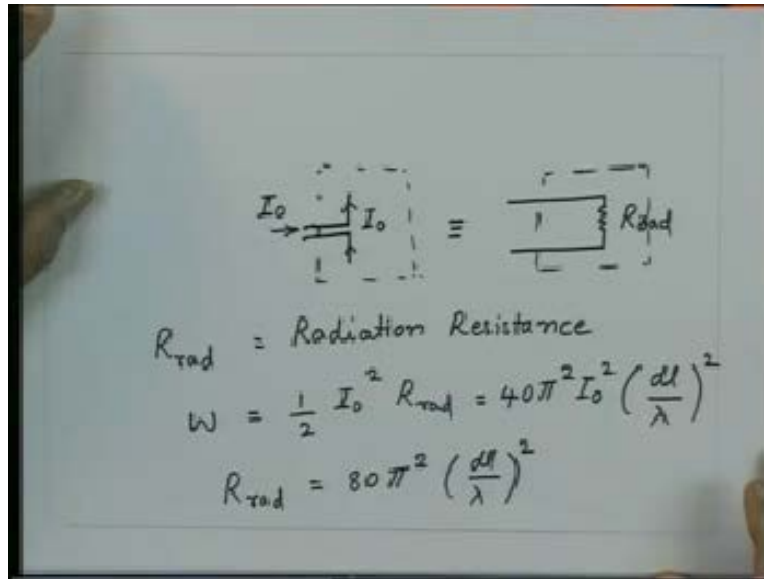 I₀ I₀ ≡ Rrad
Rrad = Radiation Resistance
W = 1/2 I₀² Rrad = 40π² I₀² (dl/λ)²
Rrad = 80π² (dl/λ)²